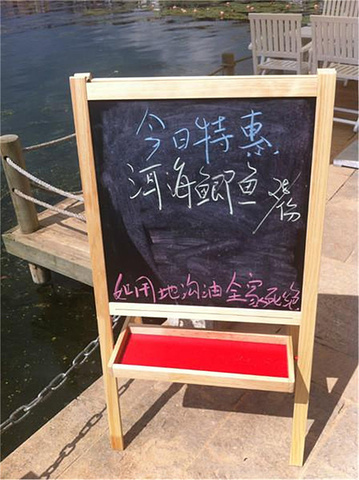 今日特惠
洱海鲫鱼
如用地沟油全家死绝